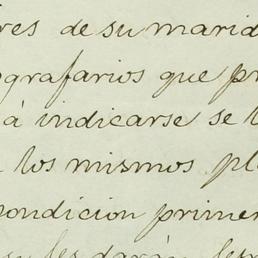 res de su marid
ografarios que pr
á indicarse se t
los mismos pl
condicion primer
su les darán